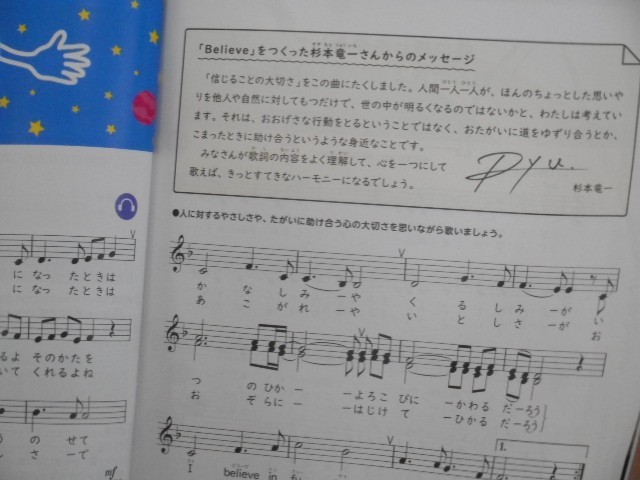 「Believe」をつくった杉本竜一さんからのメッセージ
「信じることの大切さ」をこの曲にたくしました。人間一人一人が、ほんのちょっとした思いや
りを他人や自然に対してもつだけで、世の中が明るくなるのではないかと、わたしは考えてい
ます。それは、おおげさな行動をとるということではなく、おたがいに道をゆずり合うとか、
こまったときに助け合うというような身近なことです。
みなさんが歌詞の内容をよく理解して、心を一つにして
歌えば、きっとすてきなハーモニーになるでしょう。
Ryu.
杉本竜一
●人に対するやさしさや、たがいに助け合う心の大切さを思いながら歌いましょう。
に なっ たとき は
に なっ たとき は
か な し み ー や く る し み ー が い
あ こ が れ ー や い と し さ ー が お
るよ そのかた を
いて くれるよ ね
つ の ひか ー ーよろこ びに ーかわる だーろう
お ぞ らに ー ーはじけ て ーひかる だーろう
の の せて
し さ ー で
mf
1.
I believe in